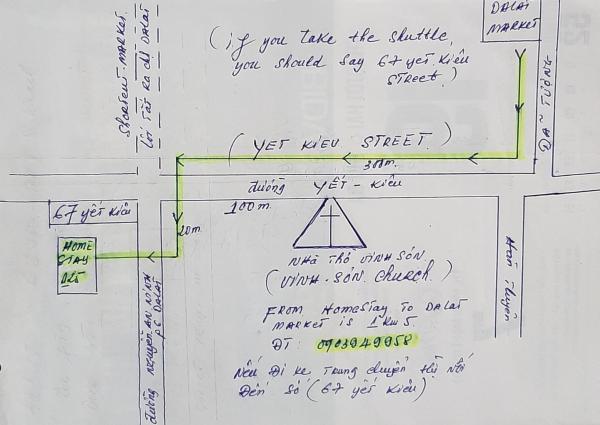 DALAT
MARKET
(if you take the shuttle,
you should say 67 yết kiêu
street.)
Shortcut-market.
Lối tắt ra chợ DALAT
DÃ TƯỢNG
(YET KIEU STREET.)
300m.
đường YẾT-Kiêu
67 yết kiêu
100m
20m
HOME
STAY
Nhà Thờ VINH SƠN
(VINH-SƠN church.)
đường Nguyễn AN NINH
P6 DALAT
FROM HomeStay TO DALAT
MARKET is 1Km5
ĐT: 0903949958
Nếu Đi xe Trung chuyển thì Nói
Đến số (67 yết kiêu)